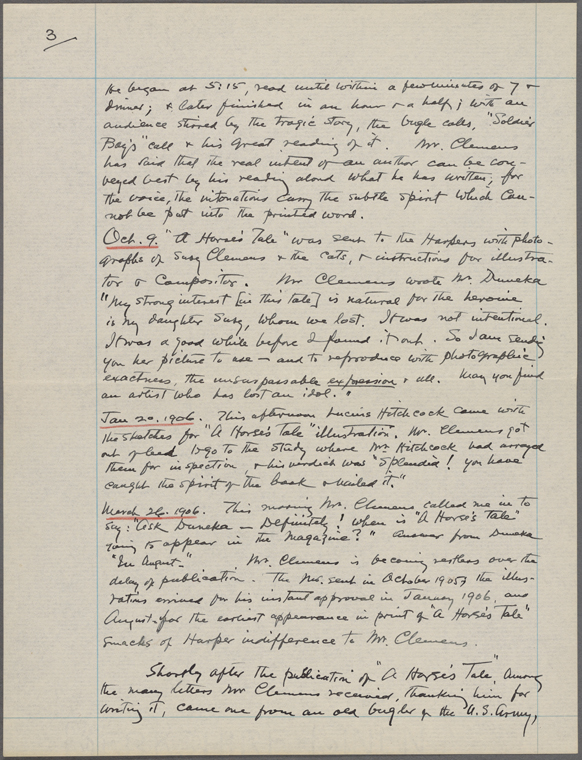 3
He began at 5:15, read until within a few minutes of 7 &
dinner; & later finished in an hour & a half; with an
audience stirred by the tragic story, the bugle calls, "Soldier
Boy's" call & his great reading of it. Mr. Clemens
has said that the real intent of an author can be con-
veyed best by his reading aloud what he has written; for
the voice, the intonations carry the subtle spirit which can-
not be put into the printed word.
Oct. 9. "A Horse's Tale" was sent to the Harpers with photo-
graphs of Susy Clemens & the cats, & instructions for illustra-
tor & compositor. Mr Clemens wrote Mr. Duneka
"My strong interest [in this tale] is natural for the heroine
is my daughter Susy, whom we lost. It was not intentional.
It was a good while before I found it out. So I am sending
you her picture to use — and to reproduce with photographic
exactness, the unsurpassable expression & all. May you find
an artist who has lost an idol."
Jan 20. 1906. This afternoon Lucius Hitchcock came with
the sketches for "A Horse's Tale" illustration. Mr. Clemens got
out of bed to go to the study where Mr Hitchcock had arrayed
them for inspection, & his verdict was "Splendid! You have
caught the spirit of the book & nailed it."
March 26. 1906. This morning Mr. Clemens called me in to
say: "Ask Duneka — Definitely! When is "A Horse's Tale"
going to appear in the Magazine?" Answer from Duneka
"In August." Mr. Clemens is becoming restless over the
delay of publication. The Ms. sent in October 1905, the illus-
trations arrived for his instant approval in January 1906, and
August for the earliest appearance in print of "A Horse's Tale"
smacks of Harper indifference to Mr. Clemens.
Shortly after the publication of "A Horse's Tale", among
the many letters Mr Clemens received, thanking him for
writing it, came one from an old bugler of the U.S. Army,